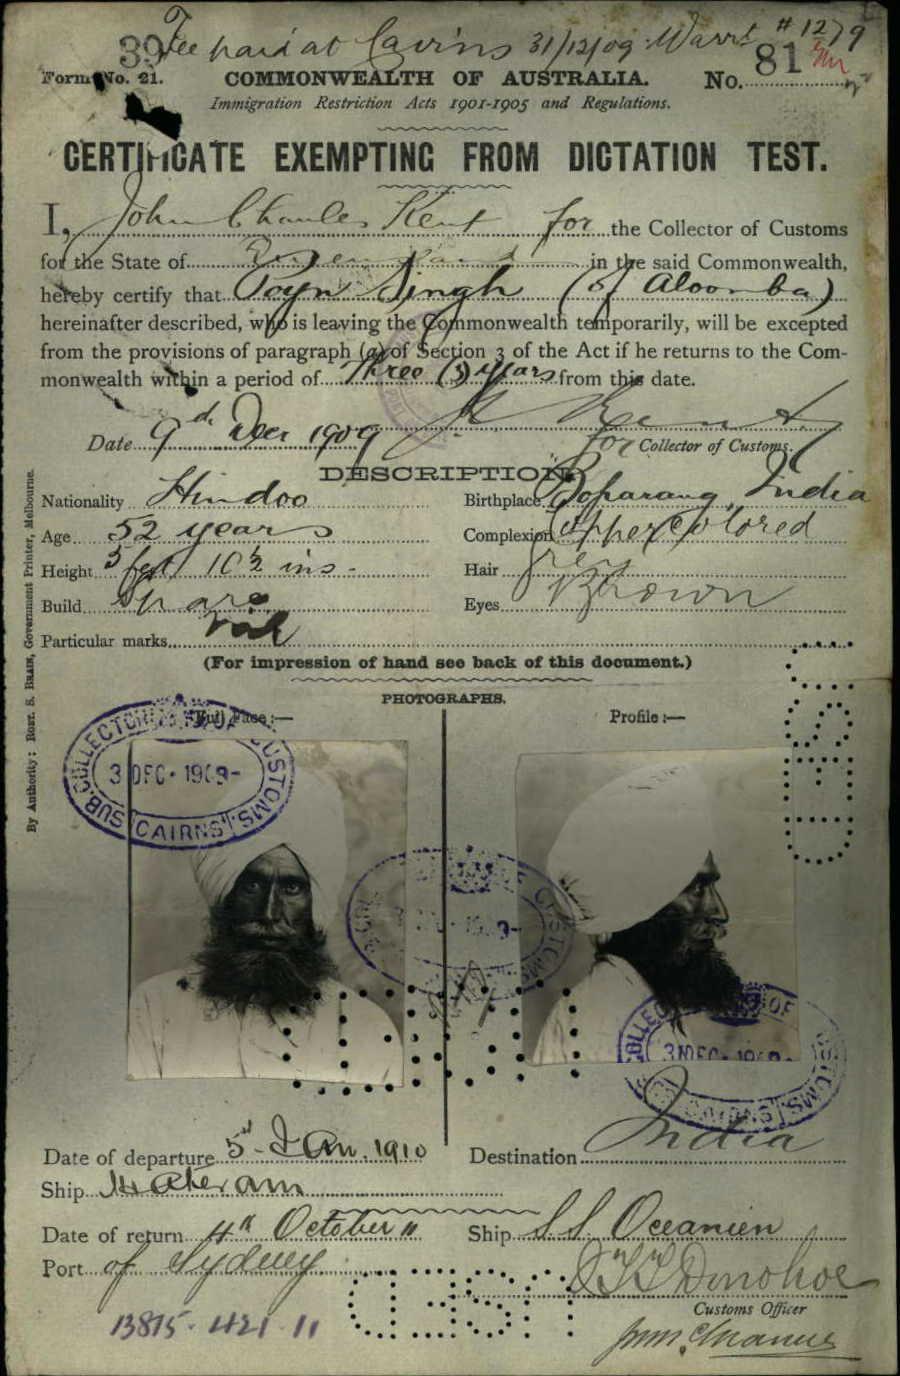 Fee paid at Cairns 31/12/09 Warrt # 1279
39
81
Form No. 21. COMMONWEALTH OF AUSTRALIA. No.
Immigration Restriction Acts 1901-1905 and Regulations.
CERTIFICATE EXEMPTING FROM DICTATION TEST.
I, John Charles Kent for the Collector of Customs
for the State of Queensland in the said Commonwealth,
hereby certify that Poyn Singh (of Aloomba)
hereinafter described, who is leaving the Commonwealth temporarily, will be excepted
from the provisions of paragraph (a) of Section 3 of the Act if he returns to the Com-
monwealth within a period of Three (3) years from this date.
J. C. Kent
Date 9d Decr 1909 for Collector of Customs.
DESCRIPTION
Nationality Hindoo Birthplace Boparang, India
Age 52 years Complexion Copper colored
Height 5 feet 10½ ins - Hair grey
Build spare Eyes Brown
Particular marks nil
(For impression of hand see back of this document.)
PHOTOGRAPHS.
Full Face :— Profile :—
SUB. COLLECTOR OF CUSTOMS. CAIRNS
3 DEC. 1909
Date of departure 5th Jan. 1910 Destination India
Ship Mataram
Date of return 4th October 11 Ship S S Oceanien
Port of Sydney Donohoe
Customs Officer
13815. 421. 11
By Authority: ROBT. S. BRAIN, Government Printer, Melbourne.